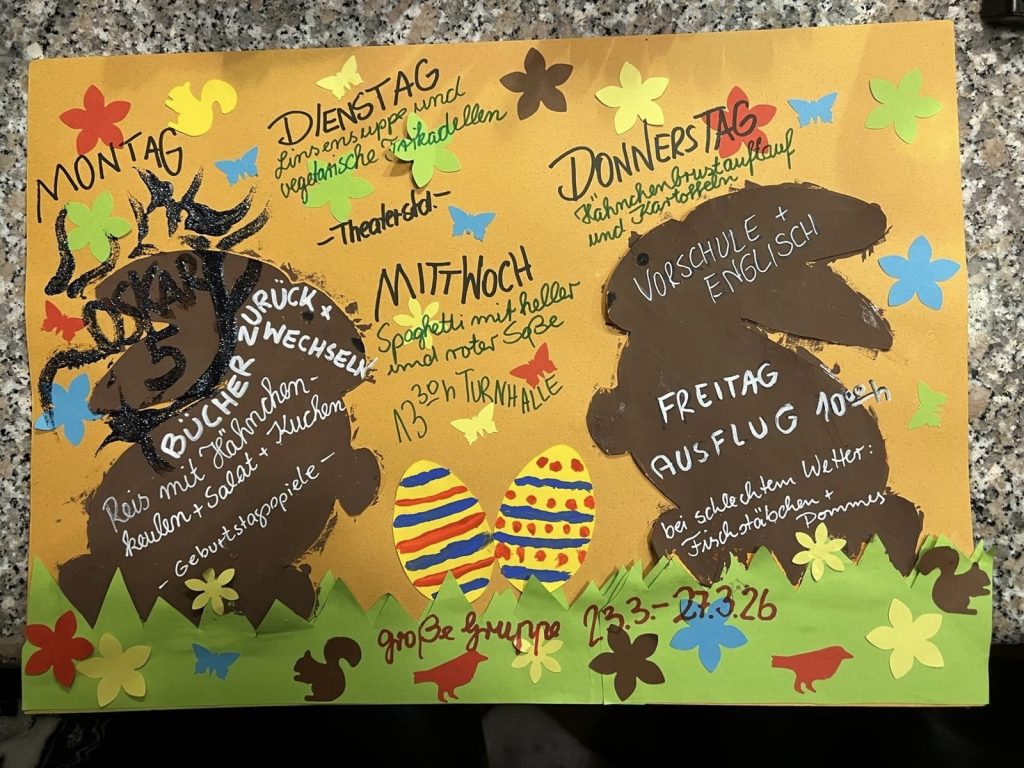 MONTAG
OSKAR
5
BÜCHER ZURÜCK +
WECHSELN
Reis mit Hähnchen-
keulen + Salat + Kuchen
- Geburtstagsspiele -
DIENSTAG
Linsensuppe und
vegetarische Frikadellen
- Theaterstd. -
MITTWOCH
Spaghetti mit heller
und roter Soße
13 30 h TURNHALLE
DONNERSTAG
Hähnchenbrustauflauf
und Kartoffeln
VORSCHULE +
ENGLISCH
FREITAG
AUSFLUG 10 00 h
bei schlechtem Wetter:
Fischstäbchen +
Pommes
große Gruppe 23.3. - 27.3.26